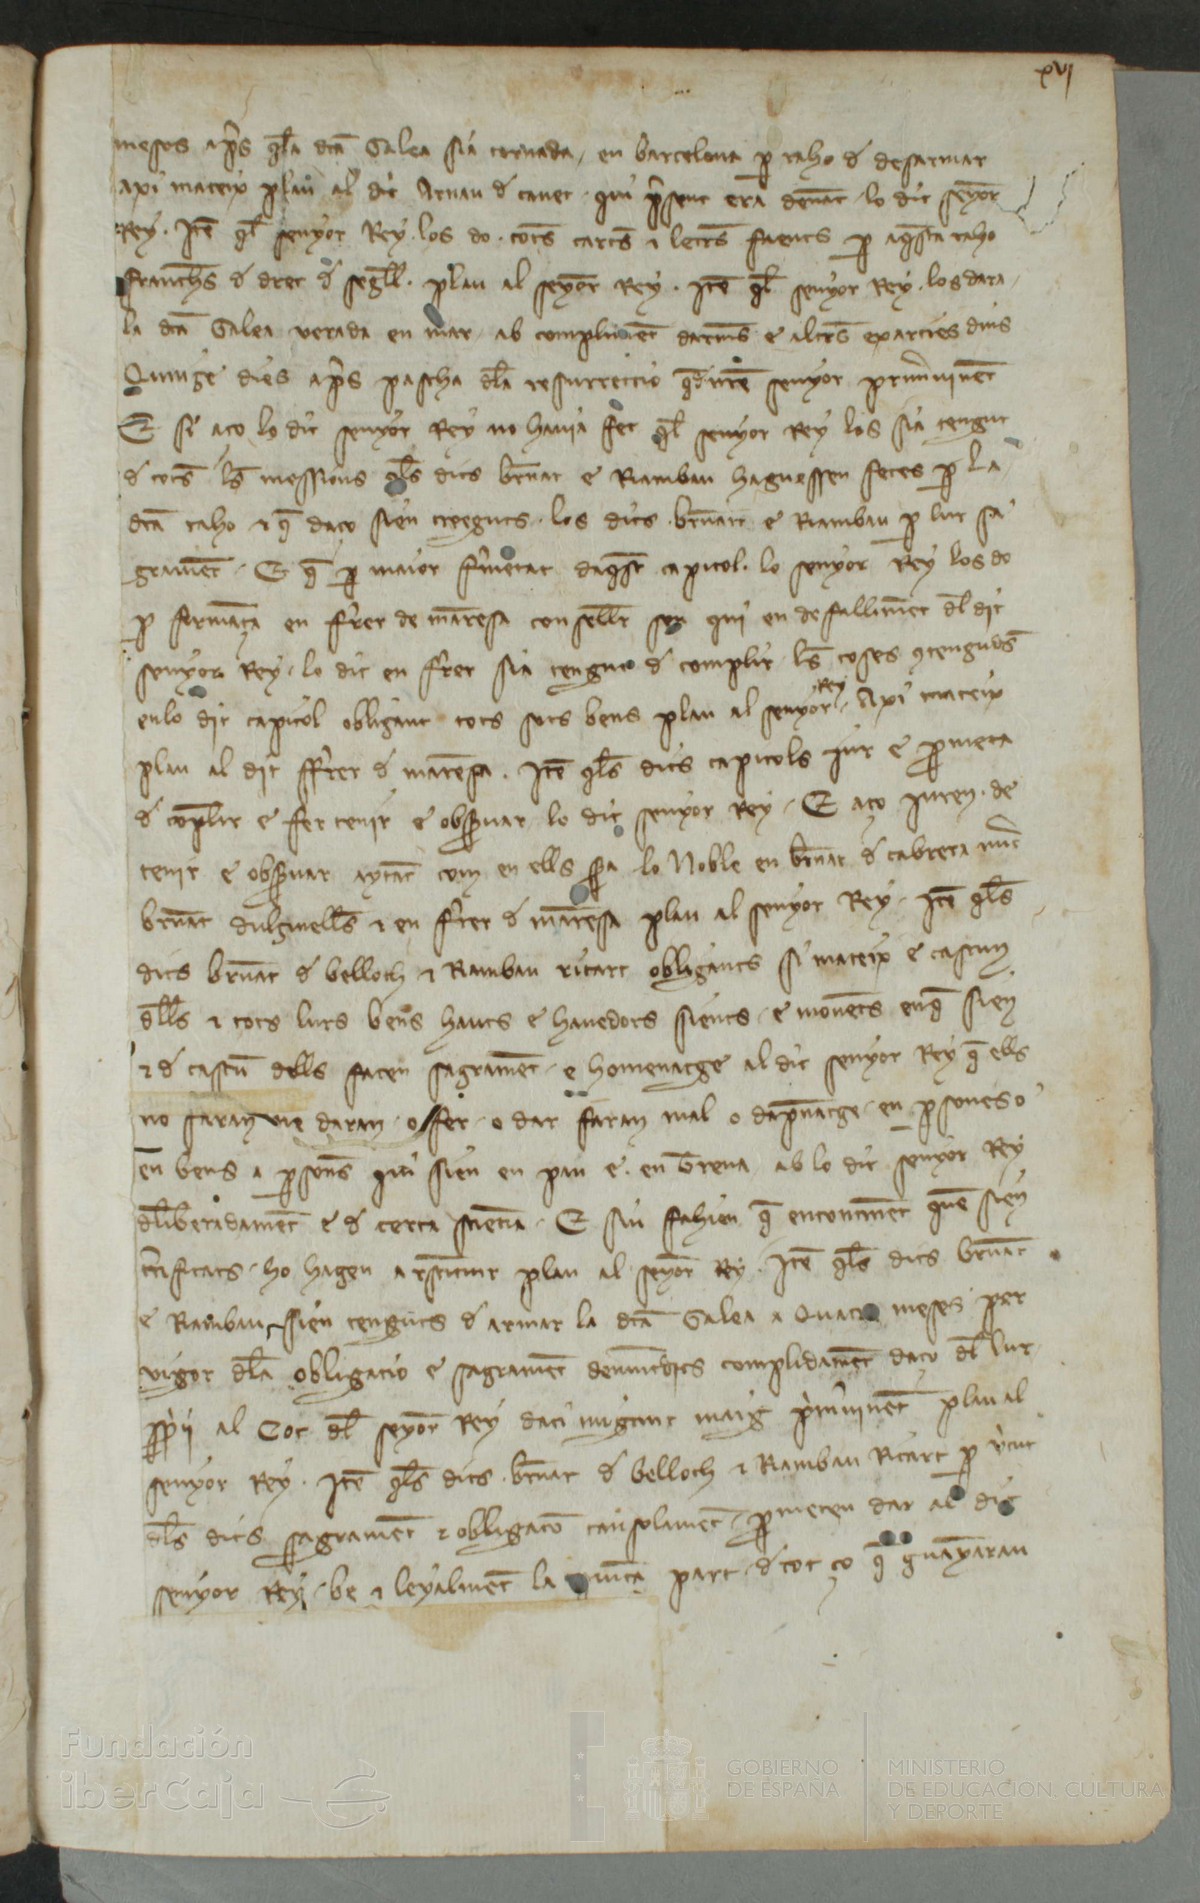 xvj
mesos aprs qla dca Galea sia tornada en barcelona p raho d desarmar
axi mateix plau al dit Arnau d canet qui psent era denant lo dit seyor
Rey. Ite ql senyor Rey los do tots cartes e letres faents p aqsta raho
franchs d dret d segll. plau al seyor Rey. Ite ql senyor Rey los dara
la dca Galea verada en mar ab compliment darmes e altres exarcies dins
Quinze dies aprs pascha dla resurreccio senyor primvinent
E si aço lo dit senyor Rey no havia fet ql senyor Rey los sia tengut
d tots ls messions qls dits bnat e Riambau haguessen fetes p la
dca raho e q daço sien creeguts los dits bnat e Riambau p lur sa
grament. E q p maior fmetat daqst capitol lo senyor Rey los do
p fermança en frer de maresa conseller seu qui en defalliment dl dit
senyor Rey lo dit en frer sia tengut d complir ls coses contengudes
en lo dit capitol obligant tots sos bens plau al senyor Rey. Axi mateix
plau al dit ffrer d maresa. Ite qls dits capitols jur e pmeta
d coplir e fer tenir e obsvar lo dit senyor Rey. E aço juren de
tenir e obsvar aytat com en ells sa lo Noble en bnat d cabrera mic
bnat dulzinells e en frer d maresa plau al senyor Rey. Ite qls
dits bnat d belloch e Rambau ricart obligants si mateix e cascun
dlls e tots lurs bens hauts e havedors sients e movents enq sien
e d cascu dells facen sagrament e homenatge al dit senyor Rey q ells
no faran ne daran o fer o dar faran mal o dapnatge en psones o
en bens a psones qui sien en pau e en treva ab lo dit senyor Rey
dliberadament e d certa sciencia. E siu fahien q encontinent quen sien
ctificats ho hagen a restituir plau al seyor Rey. Ite qls dits bnat
e Rambau sien tenguts d armar la dca Galea a Quatre meses per
vigor dla obligacio e sagrament demunt dits complidament daço dl lur
ppri al Cot dl seyor Rey daci migant maig primvinent plau al
senyor Rey. Ite qls dits bnat d belloch e Rambau Ricart p vtut
dls dits sagrament e obligaco tan solament pmeten dar al dit
senyor Rey be e leyalment la quinta part d tot ço q guanyaran
Fundación
iberCaja
GOBIERNO
DE ESPAÑA
MINISTERIO
DE EDUCACIÓN, CULTURA
Y DEPORTE